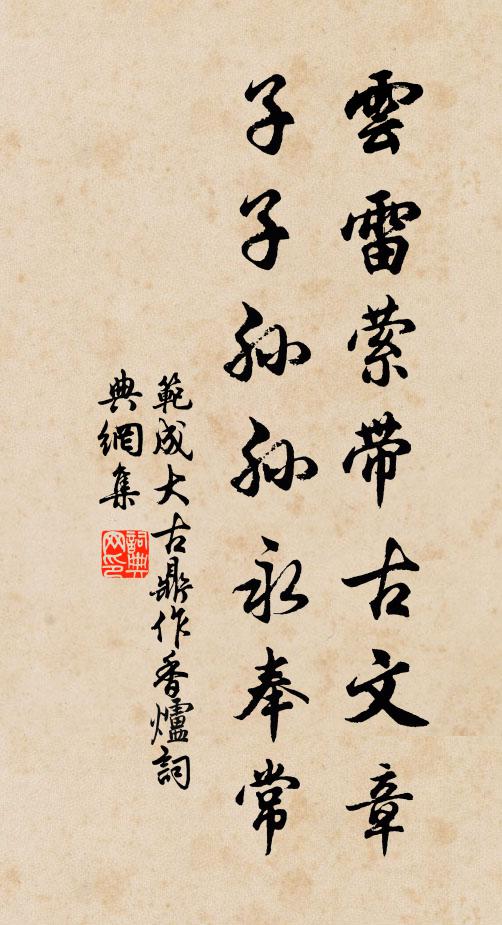 雲雷縈带古文章
子子孫孫永奉常
範成大古鼎作香爐詞
典網集
詞典
网印